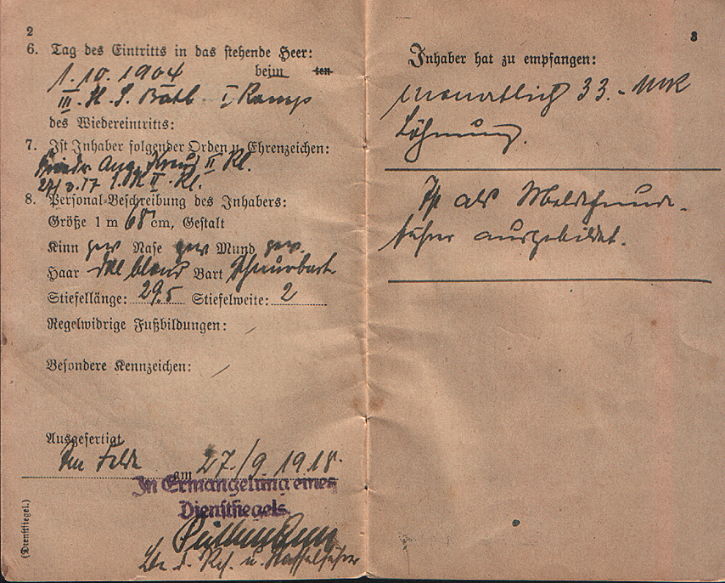 2
6. Tag des Eintritts in das stehende Heer:
1.10.1904 beim ten
III. I. Komp
des Wiedereintritts:
7. Ist Inhaber folgender Orden u. Ehrenzeichen:
Friedr. Aug. Kreuz II Kl.
II. Kl.
8. Personal-Beschreibung des Inhabers:
Größe 1 m 68 cm, Gestalt
Kinn gew Nase gew Mund gew.
Haar blond Bart Schnurbart
Stiefellänge: 29,5 Stiefelweite: 2
Regelwidrige Fußbildungen:
Besondere Kennzeichen:
Ausgefertigt
Im Felde am 27./9. 1918.
In Ermangelung eines
Dienstsiegels
Lt. d. Res. u.
(Dienstsiegel.)
3
Inhaber hat zu empfangen:
monatlich 33.- Mk
Löhnung.
Ist als Meldehunde-
führer ausgebildet.